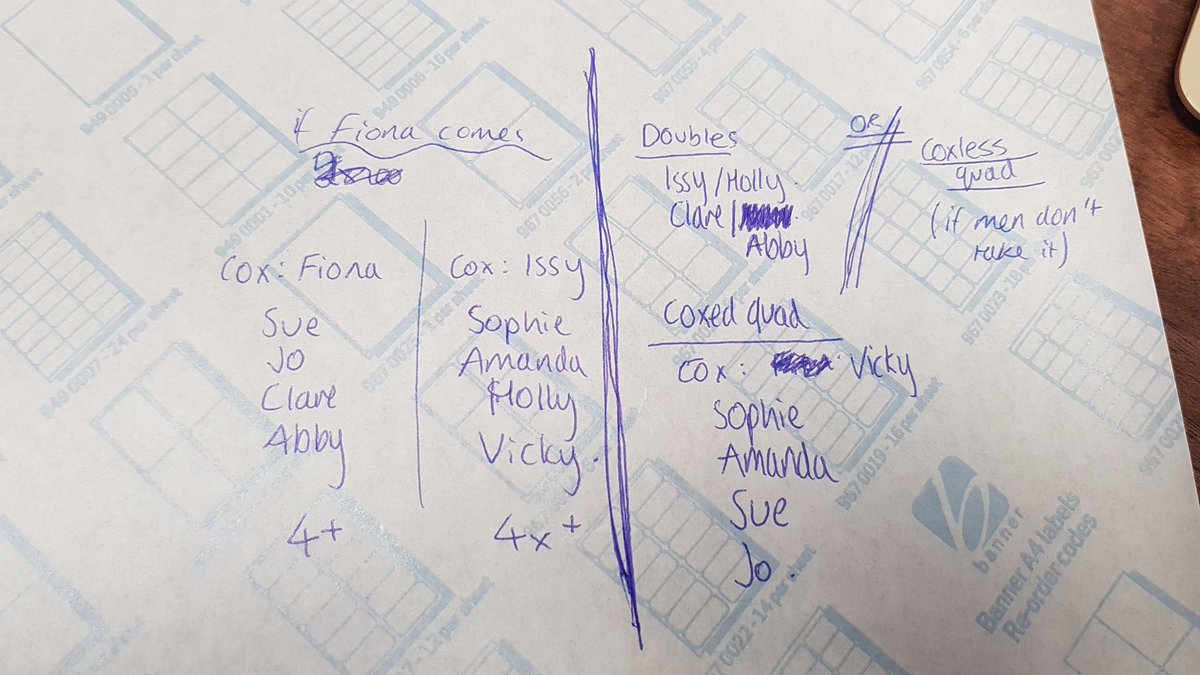 if Fiona comes
Cox: Fiona
Sue
Jo
Clare
Abby
4+
Cox: Issy
Sophie
Amanda
Holly
Vicky.
4x+
Doubles
Issy/Holly.
Clare/
Abby
OR
Coxless
quad
(if men don't
take it)
Coxed quad
Cox: Vicky
Sophie
Amanda
Sue
Jo.
banner
Banner A4 labels
Re-order codes
949 0005 - 1 per sheet
949 0006 - 16 per sheet
949 0001 - 10 per sheet
949 0007 - 24 per sheet
967 0055 - 4 per sheet
967 0056 - 2 per sheet
967 0054 - 6 per sheet
967 0017 - 12 per sheet
967 0023 - 18 per sheet
967 0019 - 16 per sheet
967 0022 - 14 per sheet